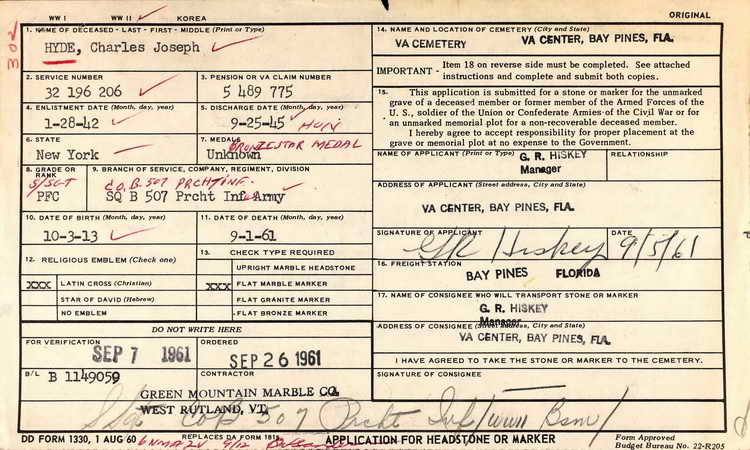 WW I WW II ✓ KOREA ORIGINAL
302
1. NAME OF DECEASED - LAST - FIRST - MIDDLE (Print or Type)
HYDE, Charles Joseph
2. SERVICE NUMBER
32 196 206
3. PENSION OR VA CLAIM NUMBER
5 489 775
4. ENLISTMENT DATE (Month, day, year)
1-28-42
5. DISCHARGE DATE (Month, day, year)
9-25-45 HON
6. STATE
New York
7. MEDALS
BRONZE STAR MEDAL
Unknown
8. GRADE OR RANK
S/SGT
PFC
9. BRANCH OF SERVICE, COMPANY, REGIMENT, DIVISION
CO. B. 507 PRCHT INF.
SQ B 507 Prcht Inf Army
10. DATE OF BIRTH (Month, day, year)
10-3-13
11. DATE OF DEATH (Month, day, year)
9-1-61
12. RELIGIOUS EMBLEM (Check one)
XXX LATIN CROSS (Christian)
STAR OF DAVID (Hebrew)
NO EMBLEM
13. CHECK TYPE REQUIRED
UPRIGHT MARBLE HEADSTONE
XXX FLAT MARBLE MARKER
FLAT GRANITE MARKER
FLAT BRONZE MARKER
DO NOT WRITE HERE
FOR VERIFICATION
SEP 7 1961
ORDERED
SEP 26 1961
B/L B 1149059
CONTRACTOR
GREEN MOUNTAIN MARBLE CO.
WEST RUTLAND, VT.
14. NAME AND LOCATION OF CEMETERY (City and State)
VA CEMETERY VA CENTER, BAY PINES, FLA.
IMPORTANT - Item 18 on reverse side must be completed. See attached
instructions and complete and submit both copies.
15. This application is submitted for a stone or marker for the unmarked
grave of a deceased member or former member of the Armed Forces of the
U. S., soldier of the Union or Confederate Armies of the Civil War or for
an unmarked memorial plot for a non-recoverable deceased member.
I hereby agree to accept responsibility for proper placement at the
grave or memorial plot at no expense to the Government.
NAME OF APPLICANT (Print or Type) G. R. HISKEY RELATIONSHIP
Manager
ADDRESS OF APPLICANT (Street address, City and State)
VA CENTER, BAY PINES, FLA.
SIGNATURE OF APPLICANT DATE
GR Hiskey 9/5/61
16. FREIGHT STATION
BAY PINES FLORIDA
17. NAME OF CONSIGNEE WHO WILL TRANSPORT STONE OR MARKER
G. R. HISKEY
Manager
ADDRESS OF CONSIGNEE (Street address, City and State)
VA CENTER, BAY PINES, FLA.
I HAVE AGREED TO TAKE THE STONE OR MARKER TO THE CEMETERY.
SIGNATURE OF CONSIGNEE
SSgt Co B 507 Prcht Inf/WWII Bsm/
DD FORM 1330, 1 AUG 60 REPLACES DA FORM 1815 9/12 APPLICATION FOR HEADSTONE OR MARKER
Form Approved
Budget Bureau No. 22-R205